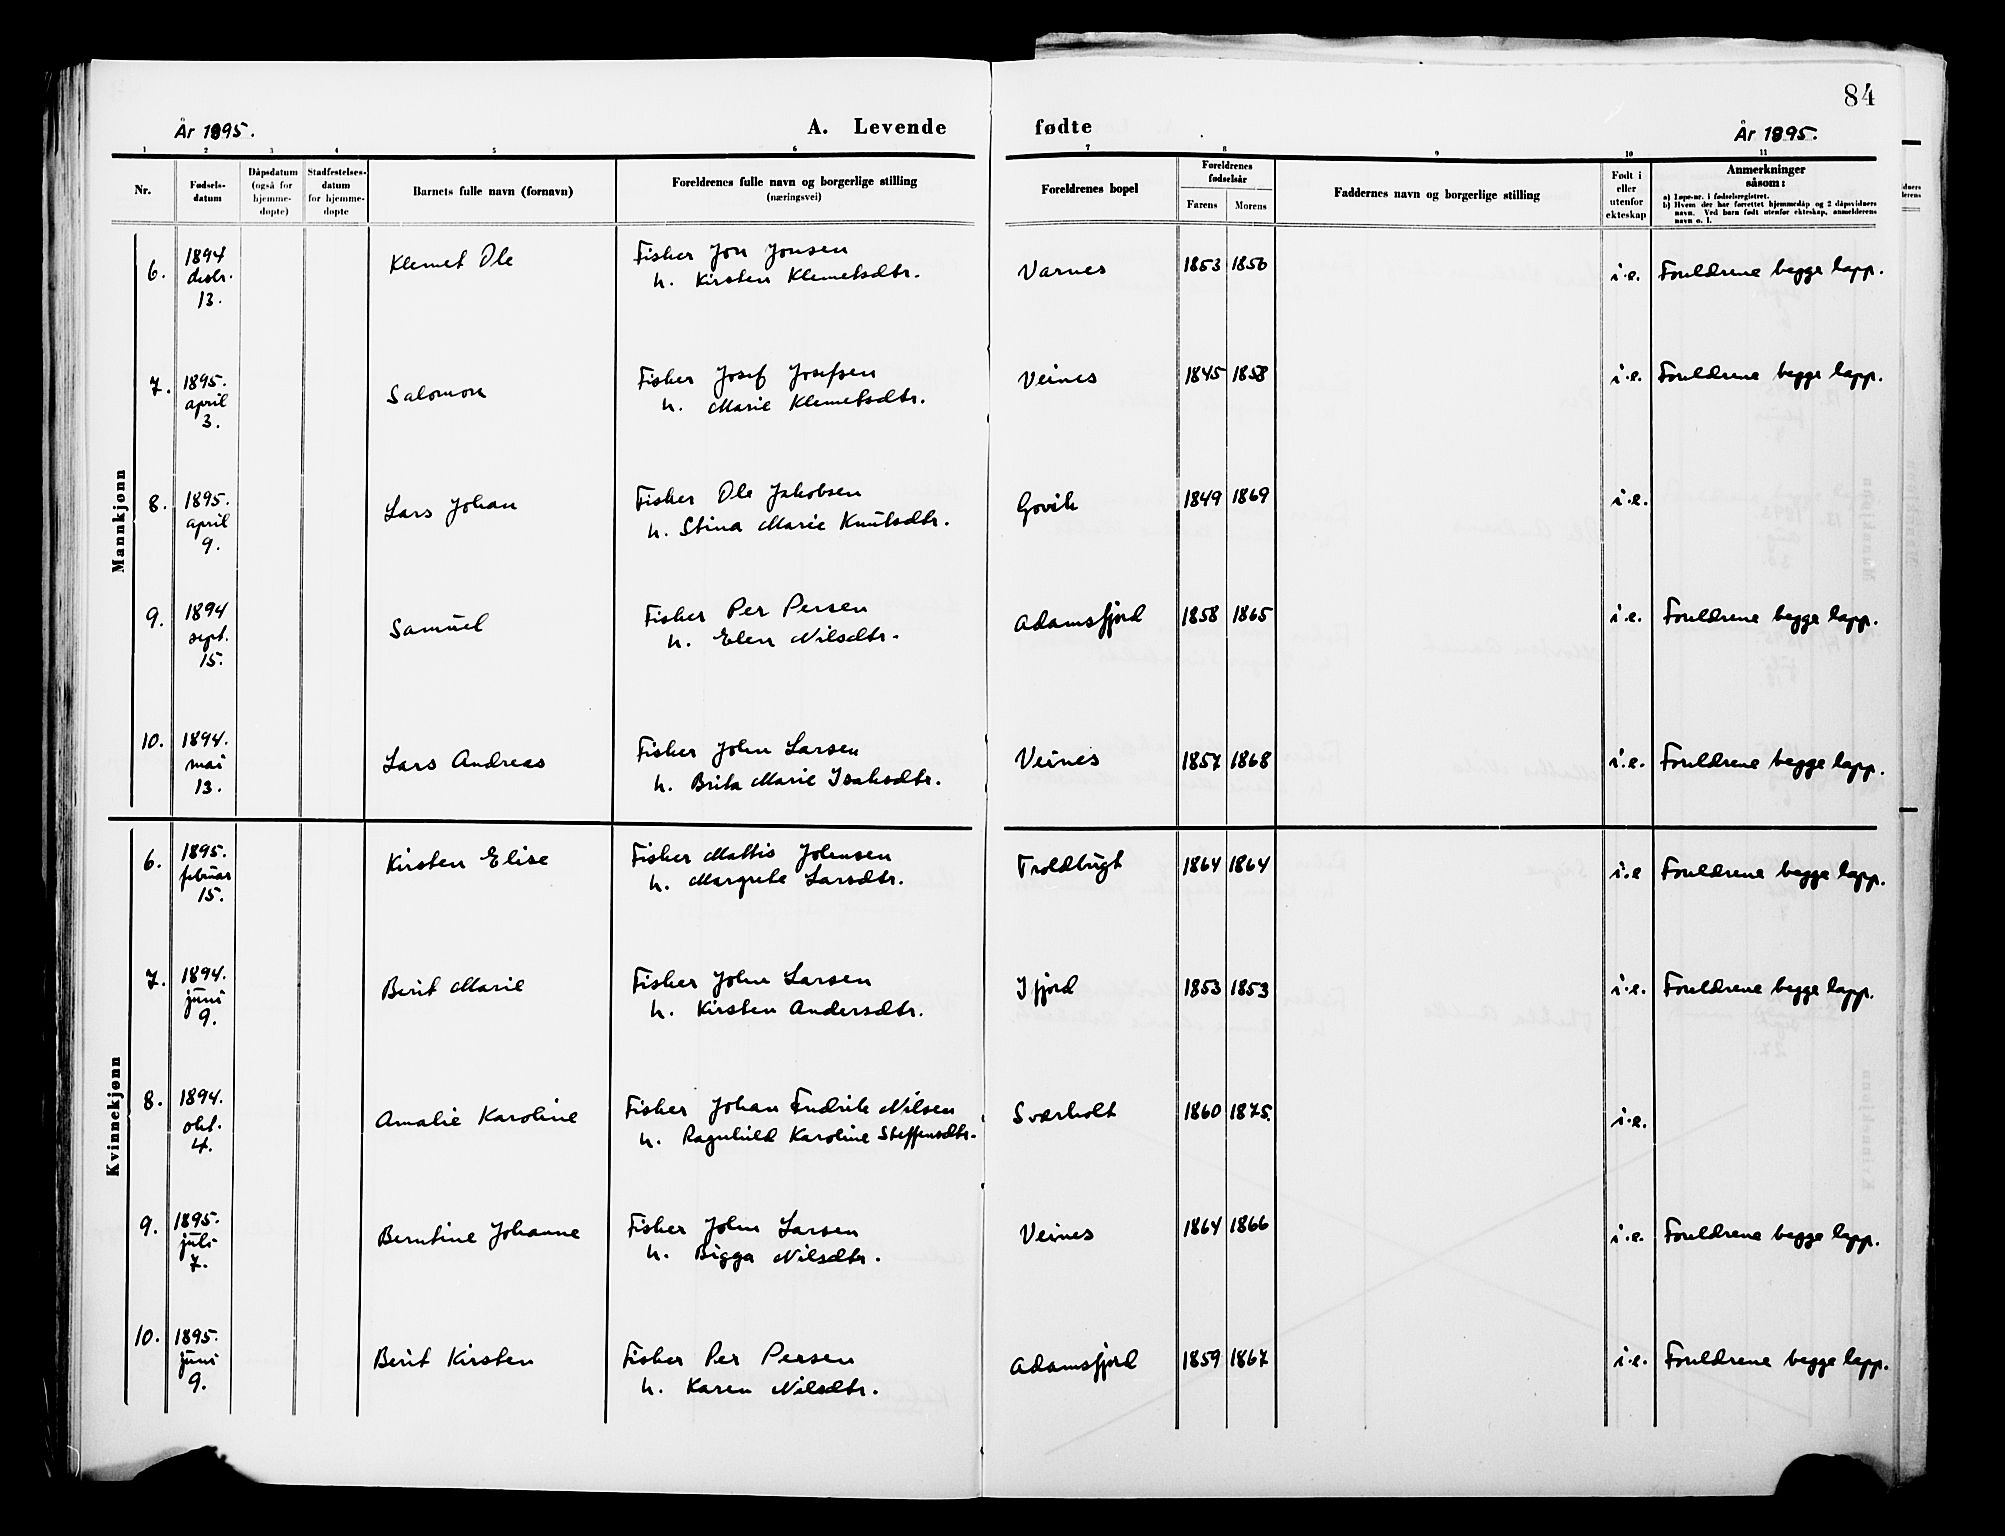 84
År 1895.
A. Levende fødte
År 1895.
1 2 3 4 5 6 7 8 9 10 11
Nr.
Fødsels-
datum
Dåpsdatum
(også for
hjemme-
døpte)
Stadfestelses-
datum
for hjemme-
døpte
Barnets fulle navn (fornavn)
Foreldrenes fulle navn og borgerlige stilling
(næringsvei)
Foreldrenes bopel
Foreldrenes
fødselsår
Farens Morens
Faddernes navn og borgerlige stilling
Født i
eller
utenfor
ekteskap
Anmerkninger
såsom:
a) Løpe-nr. i fødselsregistret.
b) Hvem der har forrettet hjemmedåp og 2 dåpsvidners
navn. Ved barn født utenfor ekteskap, anmelderens
navn o. l.
Mannkjønn
6. 1894 desbr. 13. Klemet Ole Fisker Jon Jonsen
h. Kirsten Klemetsdtr. Varnes 1853 1856 i.e. Foreldrene begge lapp.
7. 1895. april 3. Salomon Fisker Josef Josefsen
h. Marie Klemetsdtr. Veines 1845 1858 i.e. Foreldrene begge lapp.
8. 1895. april 9. Lars Johan Fisker Ole Jakobsen
h. Stina Marie Knutsdtr. Govik 1849 1869 i.e.
9. 1894 sept. 15. Samuel Fisker Per Persen
h. Elen Nilsdtr. Adamsfjord 1858 1865 i.e. Foreldrene begge lapp.
10. 1894. mai 13. Lars Andreas Fisker John Larsen
h. Brita Marie Isaksdtr. Veines 1857 1868 i.e. Foreldrene begge lapp.
Kvinnekjønn
6. 1895. februar 15. Kirsten Elise Fisker Mattis Johnsen
h. Margrete Larsdtr. Troldbugt 1864 1864 i.e Foreldrene begge lapp.
7. 1894. juni 9. Berit Marie Fisker John Larsen
h. Kirsten Andersdtr. Ifjord 1853 1853 i.e. Foreldrene begge lapp.
8. 1894. okt. 4. Amalie Karoline Fisker Johan Fredrik Nilsen
h. Ragnhild Karoline Steffensdtr. Sværholt 1860 1875. i.e.
9. 1895. juli 7. Berntine Johanne Fisker John Larsen
h. Bigga Nilsdtr. Veines 1864 1866 i.e. Foreldrene begge lapp.
10. 1895. juni 9. Berit Kirsten Fisker Per Persen
h. Karen Nilsdtr. Adamsfjord 1859 1867 i.e. Foreldrene begge lapp.